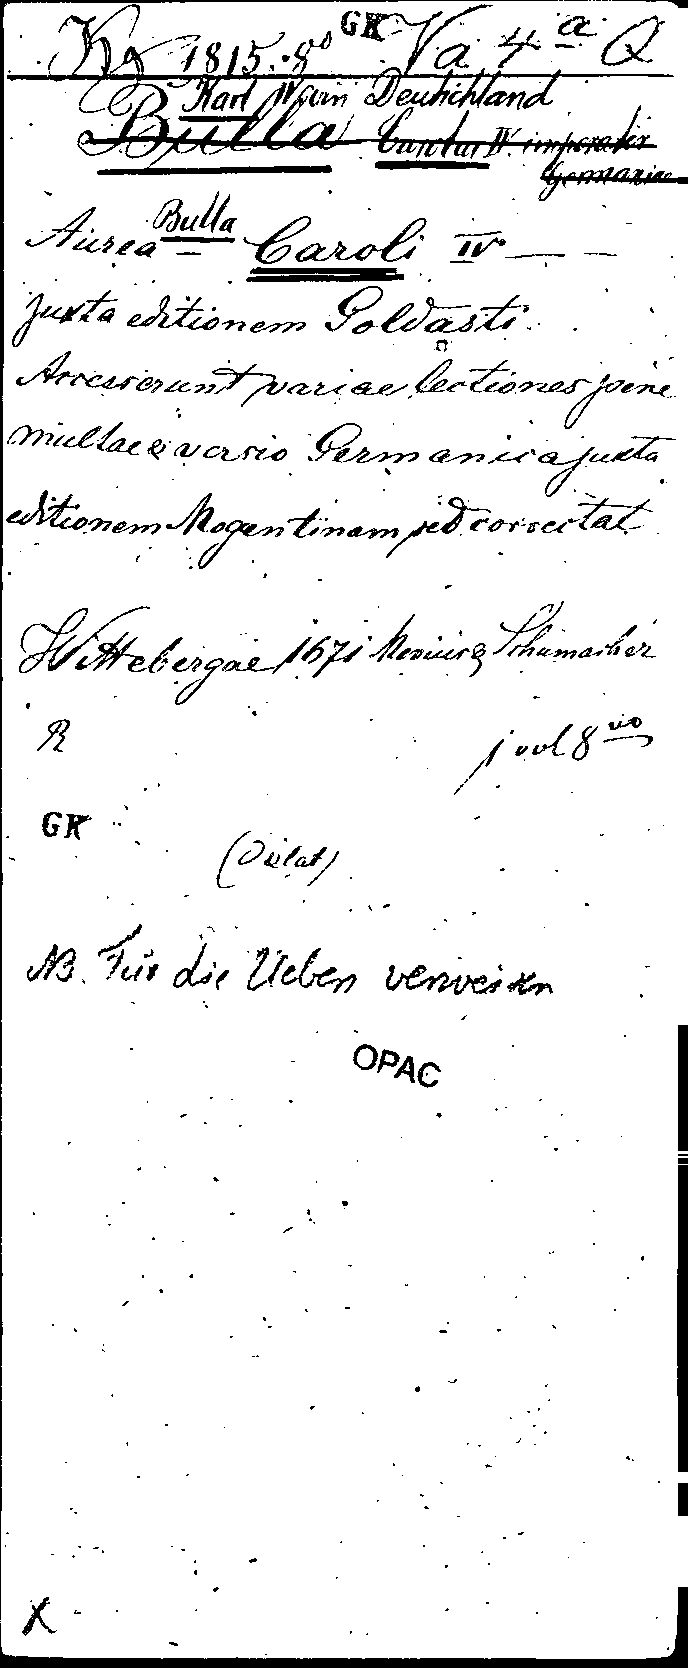 Kg 1815. 8° GK Va 4 a Q
Karl IV von Deutschland
Bulla Carolus IV. imperator
Germaniae
Aurea Bulla Caroli IV.
juxta editionem Goldasti.
Accesserunt variae lectiones pene
multae & versio Germanica juxta
editionem Mogentinam sed correctat
Wittebergae 1671 Mevius & Schumacher
R 1 vol 8 vo
GK
NB. Für die Ueben verweisen
OPAC
X